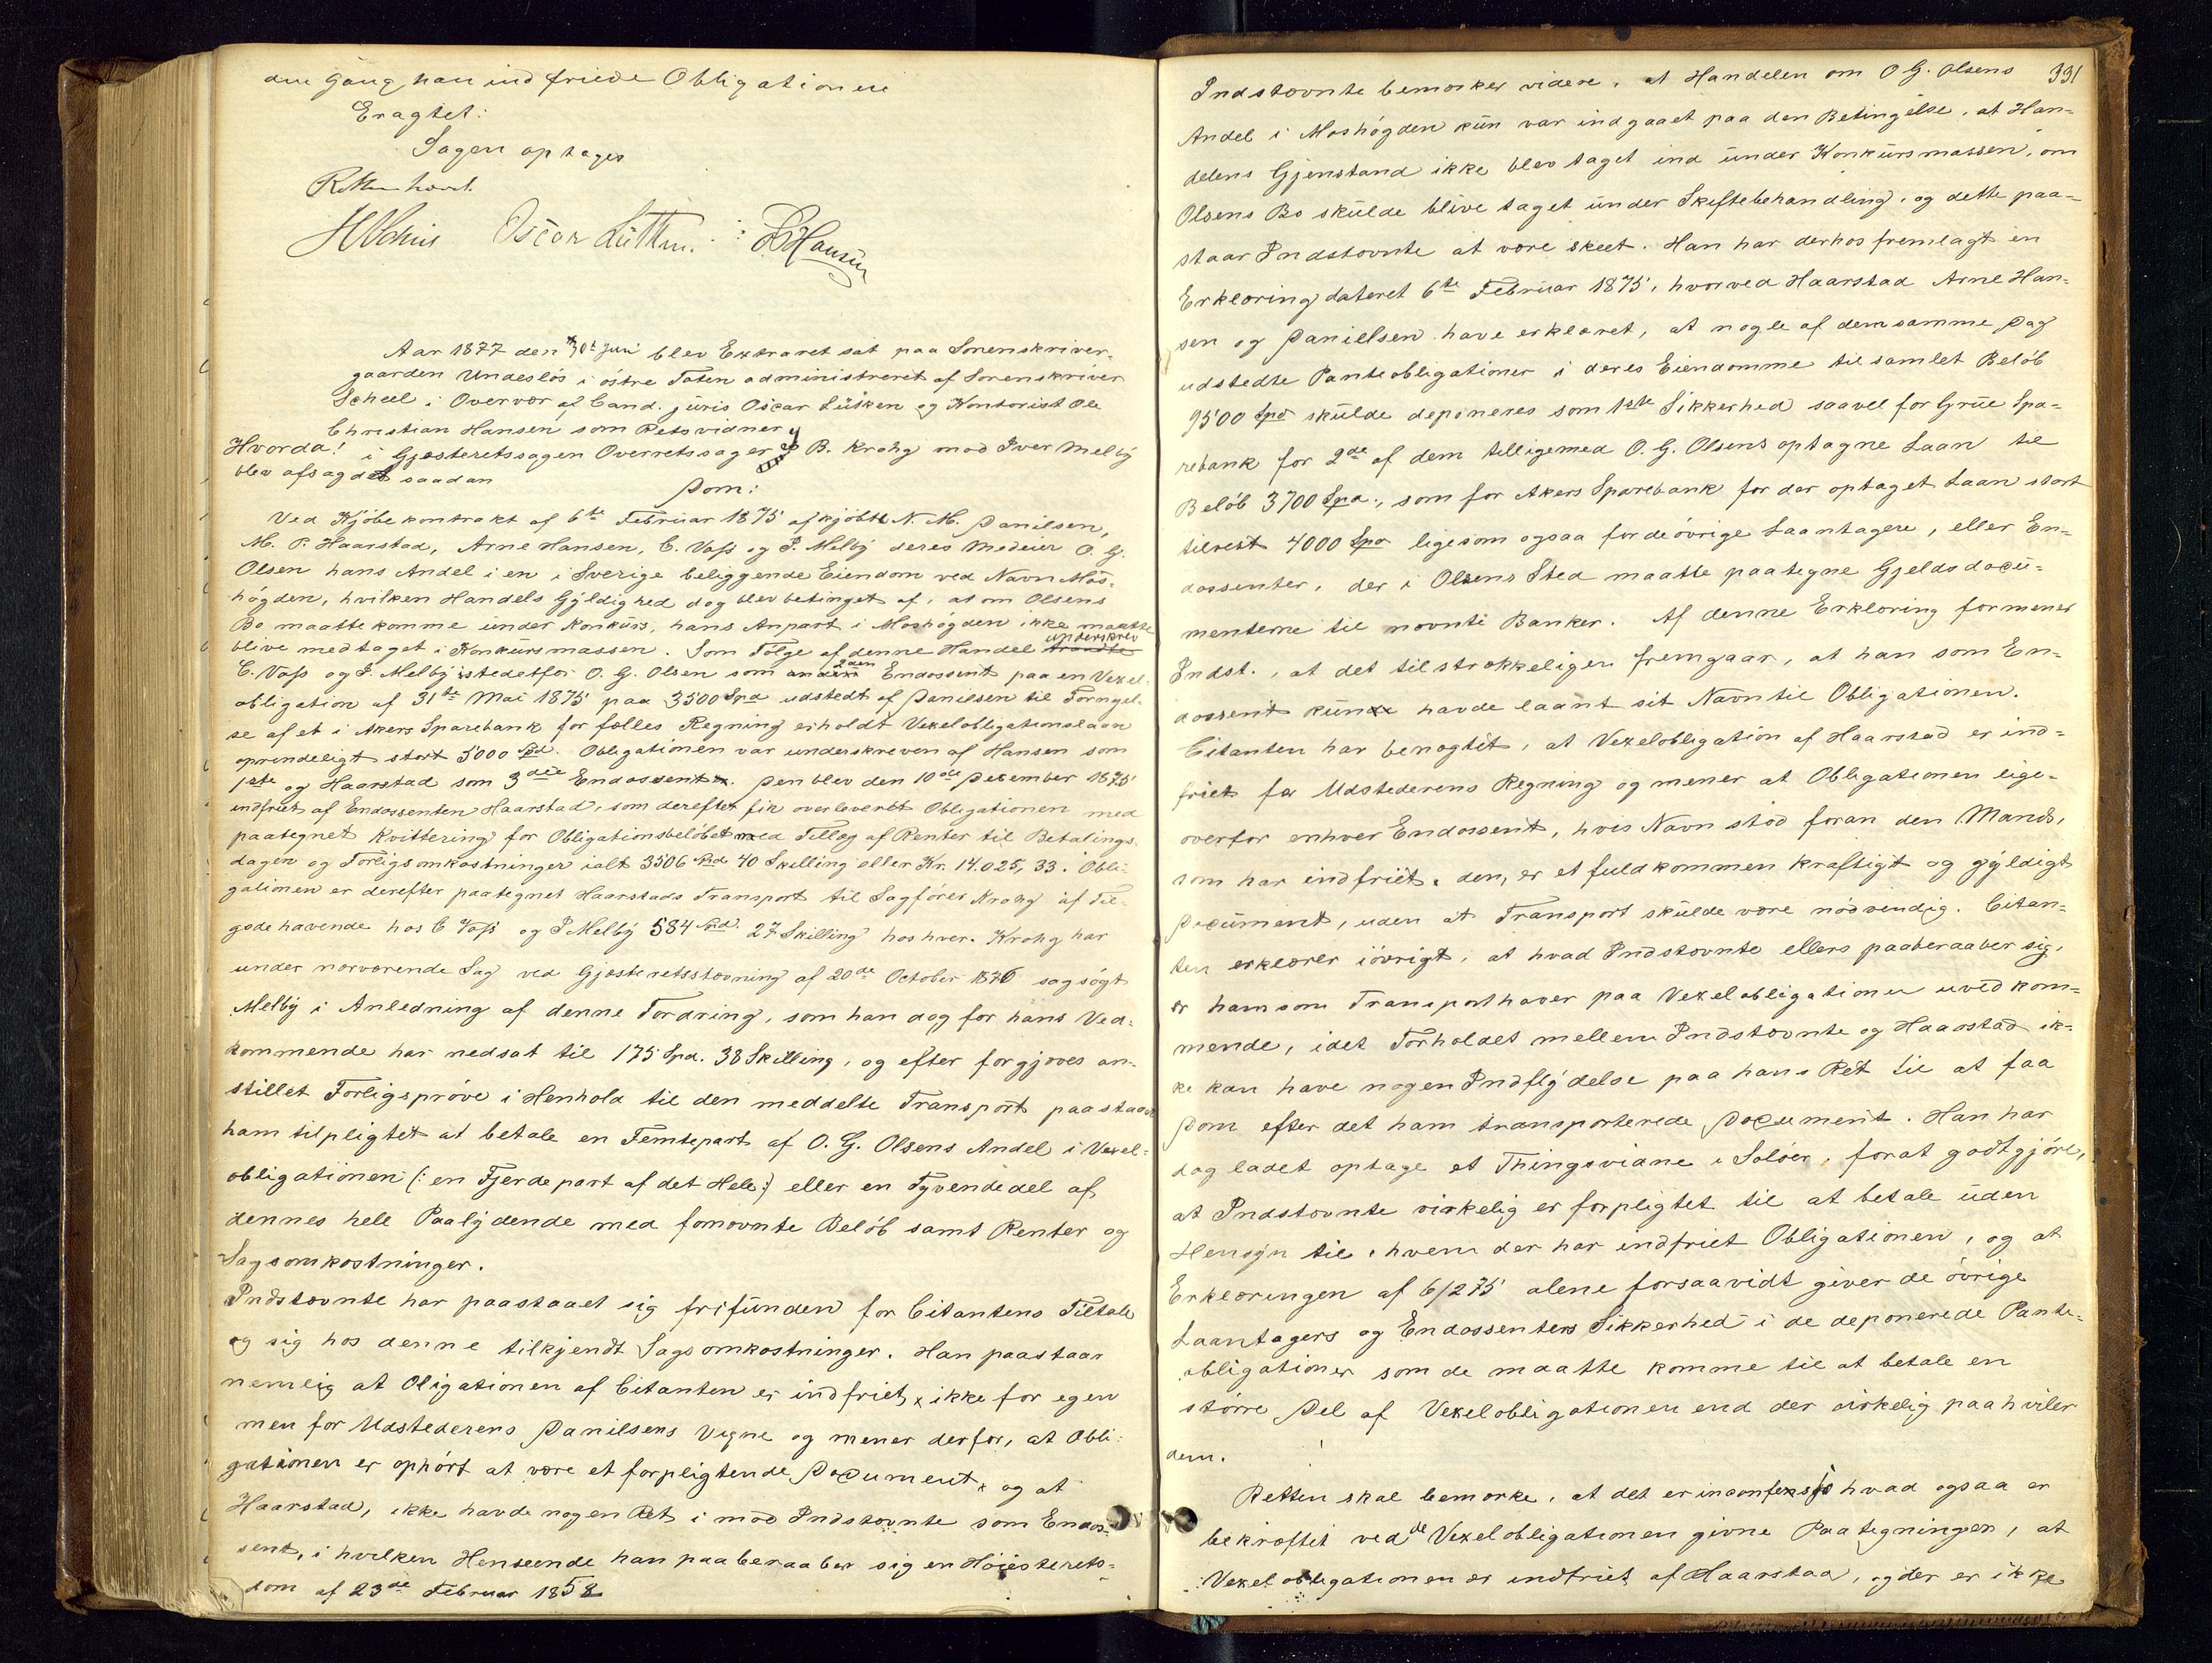 den Gang han indfriede Obligationen
Eragtet:
Sagen optages
Retten hævet.
HScheel Oscar Lütken. O.C.Hansen
Aar 1877 den 30te Juni blev Extraret sat paa Sorenskriver-
gaarden Undeslös i östre Toten administreret af Sorenskriver
Scheel i Overvær af Cand. juris Oscar Lütken og Kontorist Ole
Christian Hansen som Retsvidner
Hvorda! i Gjæsteretssagen Overretssagf B. Krohg mod Iver Melby
blev afsagdet saadan
Dom:
Ved Kjöbekontrakt af 6te Februar 1875 afkjöbte N. M. Danilsen,
M. P. Haarstad, Arne Hansen, C. Voss og I. Melby deres Medeier O. G.
Olsen hans Andel i en i Sverige beliggende Eiendom ved Navn Mos-
högden, hvilken Handels Gyldighed dog blev betinget af, at om Olsens
Bo maatte komme under Konkurs, hans Anpart i Moshögden ikke maatte
blive medtaget i Konkursmassen. Som Fölge af denne Handel underskrev
C. Voss og I. Melby istedetfor O. G. Olsen som 2den Endossent paa en Vexel-
obligation af 31te Mai 1875 paa 3500 Spd udstedt af Danilsen til Fornyel-
se af et i Akers Sparebank for fælles Regning erholdt Vexelobligationslaan
oprindeligt stort 5000 Spd. Obligationen var underskreven af Hansen som
1ste og Haarstad som 3die Endossent. Den blev den 10de December 1875
indfriet af Endossenten Haarstad, som derefter fik overleveret Obligationen med
paategnet Kvittering for Obligationsbelöbet med Tillæg af Renter til Betalings-
dagen og Forligsomkostninger ialt 3506 Spd 40 Skilling eller Kr. 14.025,33. Obli-
gationen er derefter paategnet Haarstads Transport til Sagförer Krohg af Til-
godehavende hos C Voss og I Melby 584 Spd. 27 Skilling hos hver. Krohg har
under nærværende Sag ved Gjæsteretsstævning af 20de October 1876 sagsögt
Melby i Anledning af denne Fordring, som han dog for hans Ved-
kommende har nedsat til 175 Spd. 38 Skilling, og efter forgjæves an-
stillet Forligspröve i Henhold til den meddelte Transport paastaaet
ham tilpligtet at betale en Femtepart af O. G. Olsens Andel i Vexel-
obligationen (: en Fjerdepart af det Hele :) eller en Tyvendedel af
dennes hele Paalydende med fornævnte Belöb samt Renter og
Sagsomkostninger.
Indstævnte har paastaaet sig frifunden for Citantens Tiltale
og sig hos denne tilkjendt Sagsomkostninger. Han paastaar
nemlig at Oligationen af Citanten er indfriet, ikke for egen
men for Udstederens Danilsens Vegne og mener derfor, at Obli-
gationen er ophört at være et forpligtende Document, og at
Haarstad, ikke havde nogen Ret imod Indstævnte som Endos-
sent, i hvilken Henseende han paaberaaber sig en Höiesterets-
dom af 23de Februar 1858
331
Indstævnte bemærker videre, at Handelen om O G. Olsens
Andel i Moshögden kun var indgaaet paa den Betingelse, at Han-
delens Gjenstand ikke blev taget ind under Konkursmassen, om
Olsens Bo skulde blive taget under Skiftebehandling, og dette paa-
staar Indstævnte at være skeet. Han har derhos fremlagt en
Erklæring dateret 6te Februar 1875, hvorved Haarstad Arne Han-
sen og Danielsen have erklæret, at nogle af dem samme Dag
udstedte Panteobligationer i deres Eiendomme til samlet Belöb
9500 Spd skulde deponeres som 1ste Sikkerhed saavel for Grue Spa-
rebank for 2de af dem tilligemed O. G. Olsens optagne Laan til
Belöb 3700 Spd., som for Akers Sparebank for der optaget Laan stort
tilrest 4000 Spd ligesom ogsaa for de övrige Laantagere, eller En-
dossenter, der i Olsens Sted maatte paategne Gjeldsdocu-
menterne til nævnte Banker. Af denne Erklæring formener
Indst., at det tilstrækkeligen fremgaar, at han som En-
dossent kun havde laant sit Navn til Obligationen.
Citanten har benægtet, at Vexelobligation af Haarstad er ind-
friet for Udstederens Regning og mener at Obligationen lige-
overfor enhver Endossent, hvis Navn stod foran den Mands,
som har indfriet den, er et fuldkommen kraftigt og gyldigt
Document, uden at Transport skulde være nödvendig. Citan-
ten erklærer iövrigt, at hvad Indstævnte ellers paaberaaber sig,
er ham som Transporthaver paa Vexelobligationen uvedkom-
mende, idet Forholdet mellem Indstævnte og Haarstad ik-
ke kan have nogen Indflydelse paa hans Ret til at faa
Dom efter det ham transporterede Document. Han har
dog ladet optage et Thingsvidne i Solöer, forat godtgjöre,
at Indstævnte virkelig er forpligtet til at betale uden
Hensyn til, hvem der har indfriet Obligationen, og at
Erklæringen af 6/2 75 alene forsaavidt giver de övrige
Laantagers og Endossenters Sikkerhed i de deponerede Pante-
obligationer som de maatte komme til at betale en
större Del af Vexelobligationen end der virkelig paahviler
dem.
Retten skal bemærke, at det er in confesso hvad ogsaa er
bekræftet ved de Vexelobligationen givne Paategninger, at
Vexelobligationen er indfriet af Haarstad, og der er ikke